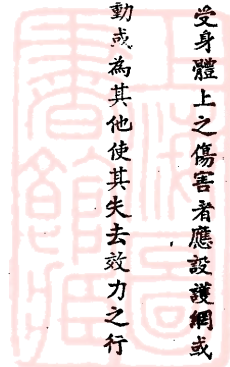 受身體上之傷害者應設護網或
動或為其他使其失去效力之行
上海圖
書館藏